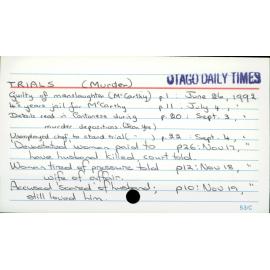 TRIALS (Murder) OTAGO DAILY TIMES
Guilty of manslaughter (McCarthy) p1: June 26, 1992
4½ years jail for McCarthy p11: July 4, "
Details read in Cantonese during p.20: Sept. 3, "
murder depositions
Unemployed chef to stand trial ( " ) p.22: Sept. 4, "
'Devastated' woman paid to p26: Nov 17, "
have husband killed, court told.
Woman tired of pressure told p12: Nov 18, "
wife of affair.
Accused scared of husband; p10: Nov 19, "
still loved him.